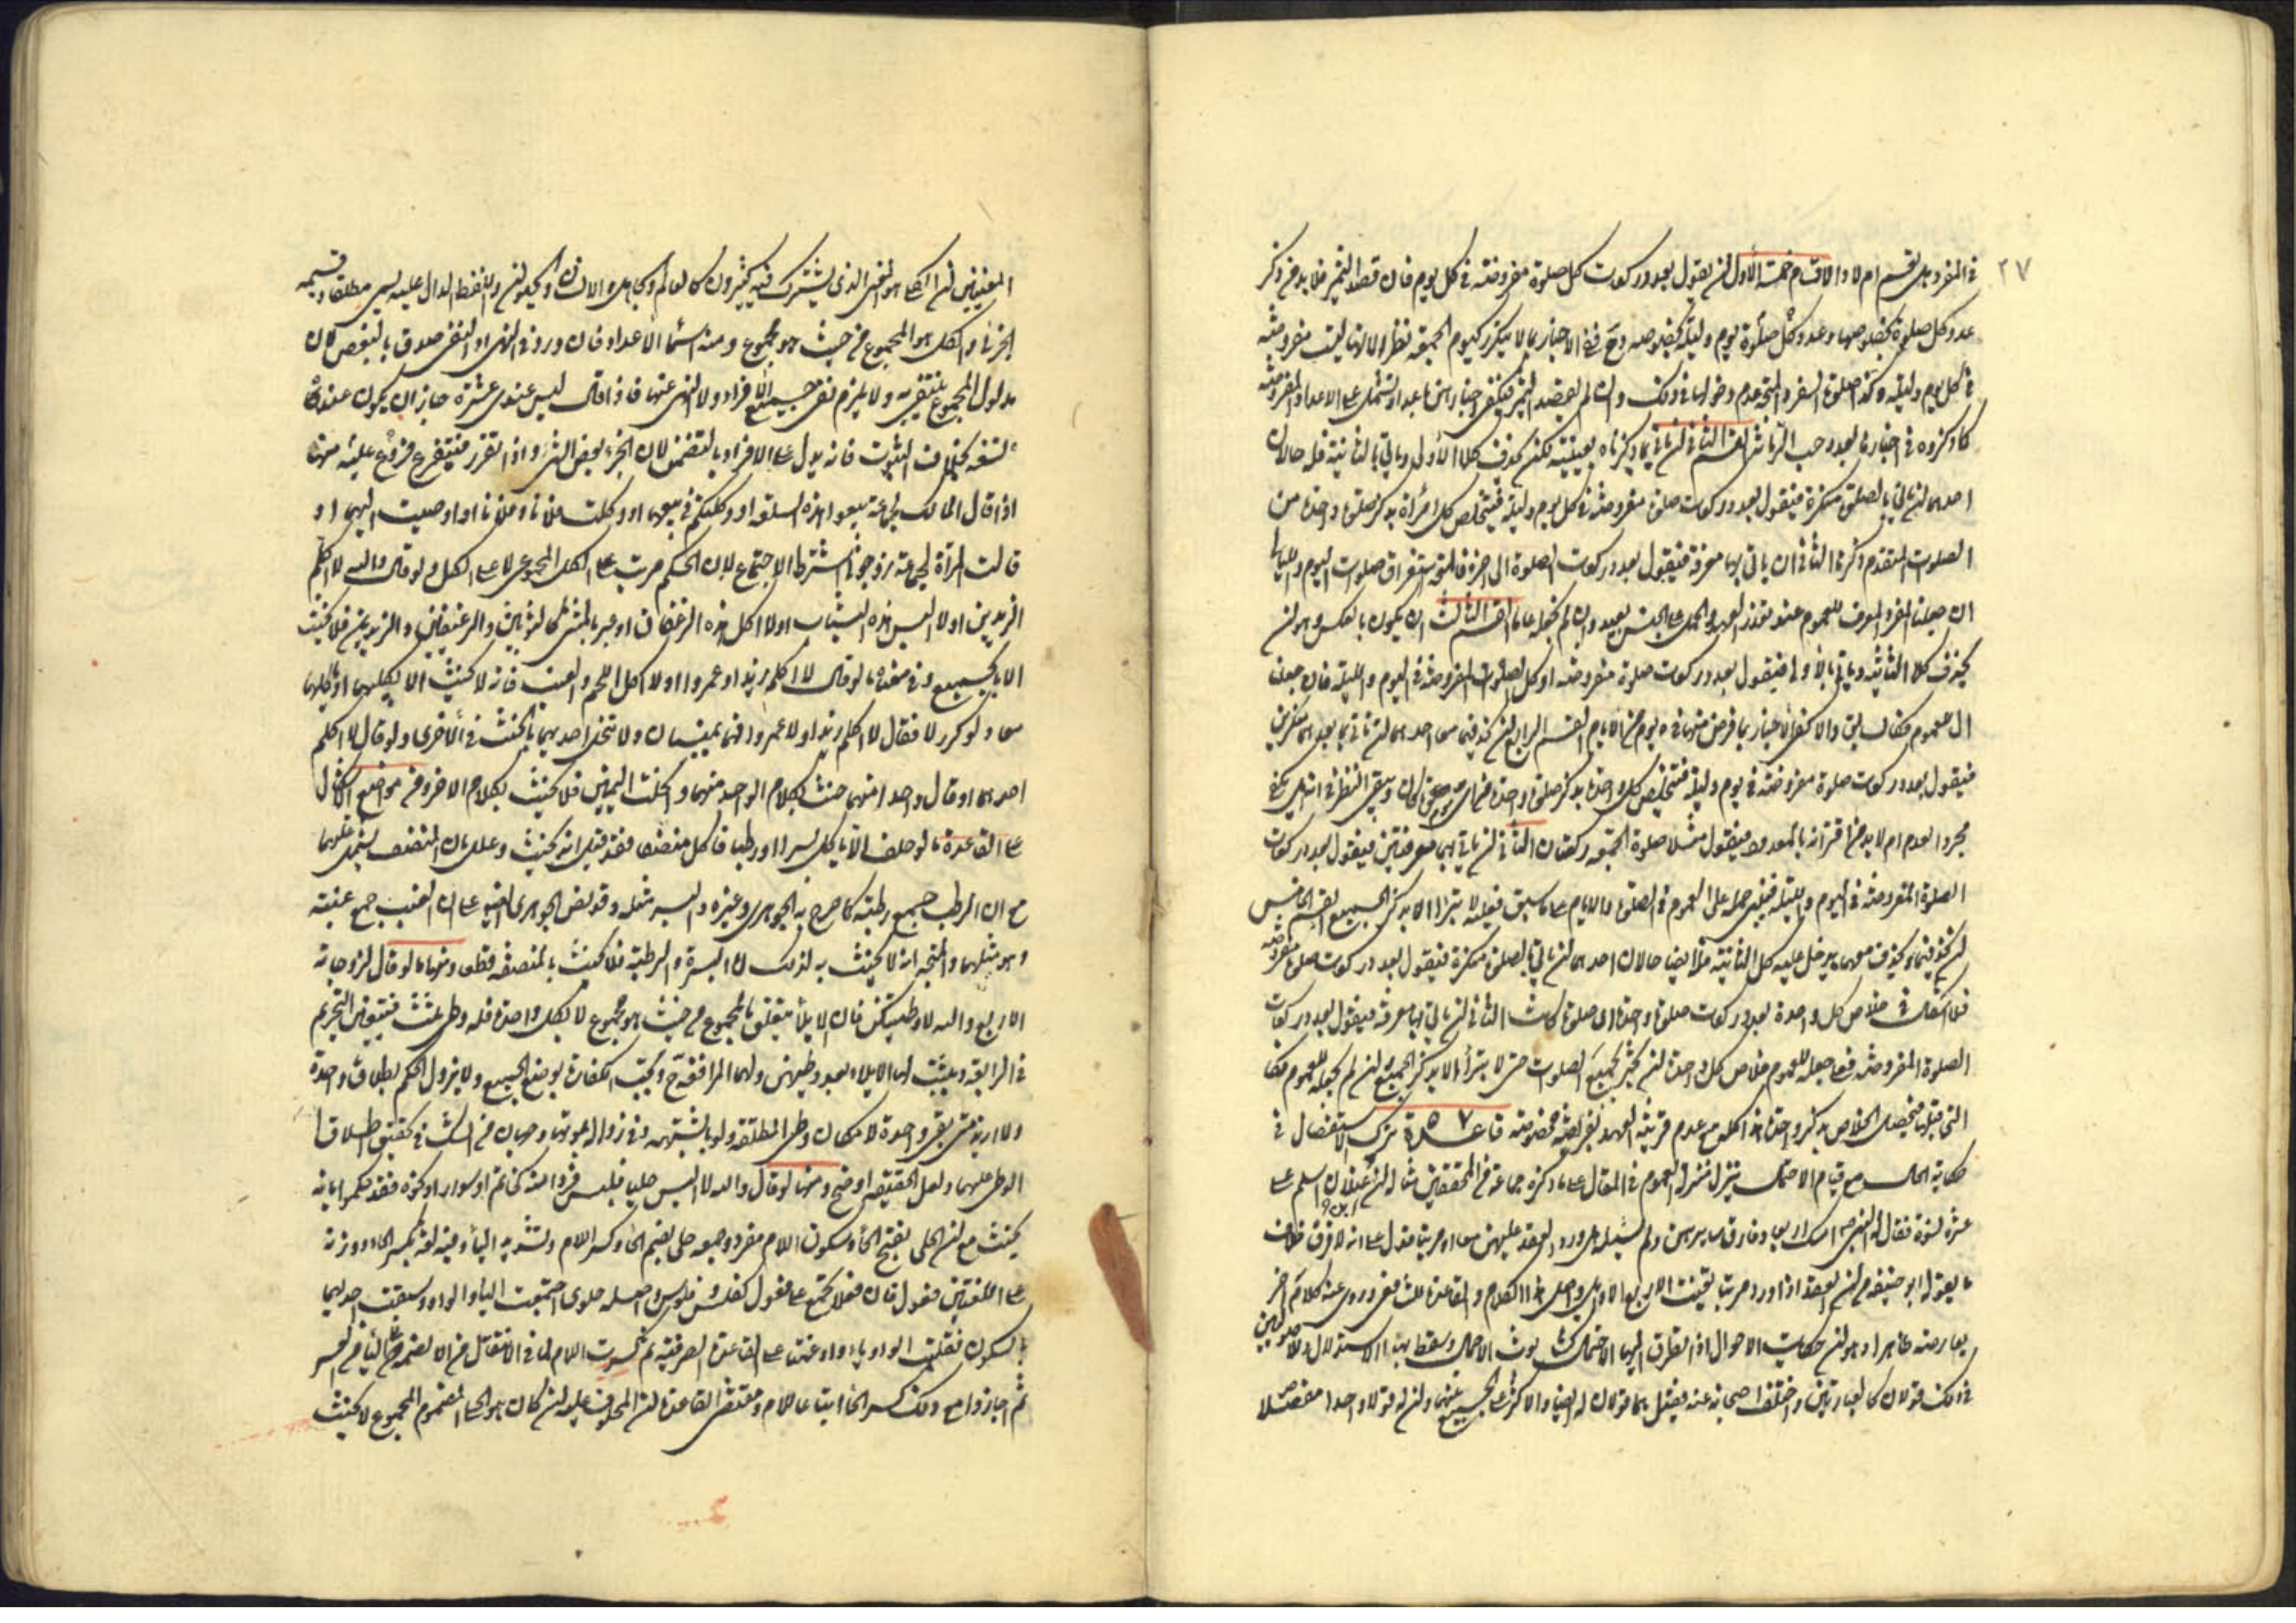 ٢٧
في المفرد هل يقسم ام لا والاقسام خمسة الاول ان يقول بعدد ركعات كل صلوة مفروضة في كل يوم فان قصد التميز فلا بد من ذكر
عدد كل صلوة بخصوصها وعدد كل صلوة يوم وليلة بخصوصه وح ففي الاخبار بما لا يتكرر كيوم الجمعة نظر لانها ليست مفروضة
في كل يوم وليلة وكذا صلوة السفر والمتجه عدم دخولها في ذلك وان لم يقصد التميز فيكفي اخبارهن باعداد تشتمل على الاعداد المفروضة
كما ذكروه في اخبارها بعدد حب الرمانة القسم الثاني ان ياتي بما ذكرناه بعينه لكن يحذف كلا الاولى وياتي بالثانية فله حالان
احدهما ان ياتي بالصلوة منكرة فيقول بعدد ركعات صلوة مفروضة في كل يوم وليلة فيتخلص كل امراة بذكر صلوة واحدة من
الصلوات المتقدم ذكرها الثاني ان ياتي بها معرفة فيقول بعدد ركعات الصلوة الى اخره فالمتجه استغراق صلوات اليوم والليلة
ان جعلنا المفرد المعرف للعموم عند تعذر العهد والحمل على الجنس بعيد وان لم نجعله عاما القسم الثالث ان يكون بالعكس وهو ان
يحذف كلا الثانية وياتي بالاولى فيقول بعدد ركعات صلوة مفروضة او كل الصلوات المفروضة في اليوم والليلة فان جعلنا
ال للعموم فكالسابق والا كفى الاخبار بما فرض منها في يوم من الايام القسم الرابع ان يحذفهما معا احدهما ان ياتي بعدهما منكرين
فيقول بعدد ركعات صلوة مفروضة في يوم وليلة فتتخلص كل واحدة بذكر صلوة واحدة من اي يوم كان ويبقى النظر في انه هل يكفي
مجرد العدد ام لا بد من اقترانه بالمعدود فيقول مثلا صلوة الجمعة ركعتان الثاني ان ياتي بهما معرفتين فيقول بعدد ركعات
الصلوة المفروضة في اليوم والليلة فينبغي حمله على العموم في الصلوة والايام على ما سبق فعليه لا تبرأ الا بذكر الجميع القسم الخامس
ان يحذفهما ويحذف معهما ما يدخل عليه كل الثانية فله ايضا حالان احدهما ان ياتي بالصلوة منكرة فيقول بعدد ركعات صلوة مفروضة
فلا اشكال في خلاص كل واحدة بعدد ركعات صلوة واحدة اي صلوة كانت الثاني ان ياتي بها معرفة فيقول بعدد ركعات
الصلوة المفروضة فعلى جعله للعموم خلاص كل واحدة ان تخبر بجميع الصلوات حتى لا تبرأ الا بذكر الجميع وان لم نجعله للعموم فكا
التي قبلها فيحصل الخلاص بذكر واحدة هذا كله مع عدم قرينة العهد لفريضة مخصوصة قاعدة ٥٧ ترك الاستفصال في
حكاية الحال مع قيام الاحتمال ينزل منزلة العموم في المقال على ما ذكره جماعة من المحققين مثاله ان ابن غيلان اسلم على
عشرة نسوة فقال له النبي ص امسك اربعا وفارق سايرهن ولم يسئله هل ورد العقد عليهن معا او مرتبا فدل على انه لا فرق خلاف
ما يقوله ابو حنيفة من ان العقد اذا ورد مرتبا تعينت الاربع الاول واصل هذا الكلام والقاعدة للشافعي وروي عنه كلام اخر
يعارضه ظاهرا وهو ان حكايات الاحوال اذا تطرق اليها الاحتمال كساها ثوب الاجمال وسقط بها الاستدلال وللاصوليين
في ذلك قولان كالعبارتين واختلف اصحابه عنه فقيل هما قولان له ايضا والاكثر على الجمع بينهما وان له قولا واحدا مفصلا
المعنيين ان الكلي هو المعنى الذي يشترك فيه كثيرون كالعالم والجاهل والانسان والحيوان واللفظ الدال عليه يسمى مطلقا وقسيمه
الجزئي والكل هو المجموع من حيث هو مجموع ومنه اسماء الاعداد فان ورد في النهي او النفي صدق بالبعض لان
مدلول المجموع ينتفي به ولا يلزم نفي جميع الافراد ولا النهي عنها فاذا قال ليس عندي عشرة جاز ان يكون عنده
تسعة بخلاف الثبوت فانه يدل على الافراد بالتضمن لان الجزء بعض الشئ واذا تقرر فيتفرع فروع عليه منها
اذا قال المالك لجماعة بيعوا هذه السلعة او وكلتكم في بيعها او وكلت فلانا وفلانا او اوصيت اليهما او
قالت المراة لجماعة زوجوني اشترط الاجتماع لان الحكم مرتب على الكل المجموعي لا على الكل ولو قال والله لا اكلم
الزيدين او لا البس هذه الثياب او لا اكل هذه الرغفان او عبر بالمثنى كالثوبين والرغيفين والزيدين فلا يحنث
الا بالجميع وفي معناه ما لو قال لا اكلم زيدا وعمروا او لا اكل اللحم والعنب فانه لا يحنث الا بكليهما او كلهما
معا ولو كرر لا فقال لا اكلم زيدا ولا عمروا فهما يمينان ولا تنحل احديهما بالحنث في الاخرى ولو قال لا اكلم
احدهما او قال واحدا منهما حنث بكلام الواحد منهما وانحلت اليمين فلا يحنث بكلام الاخر ومن مواضع الاشكال
على القاعدة ما لو حلف الا ياكل بسرا او رطبا فاكل منصفا فقد قيل انه يحنث وعلل بان المنصف يشتمل عليهما
مع ان الرطب جمع رطبة كما صرح به الجوهري وغيره والبسر مثله وقد نص الجوهري ايضا على ان العنب جمع عنبة
وهو مثلهما والمتجه انه لا يحنث به لذلك اما البسرة والرطبة فلا يحنث بالمنصفة قطعا ومنها ما لو قال لزوجاته
الاربع والله لا وطئتكن فان الايلاء يتعلق بالمجموع من حيث هو مجموع لا بكل واحدة فله وطى ثلث فيتعين التحريم
في الرابعة ويثبت لها الايلاء بعد وطيهن ولها المرافعة ح وتجب الكفارة بوطي الجميع ولا يزول الحكم بطلاق واحدة
ولا اربع حتى بقي واحدة لامكان وطى المطلقة ولو بالشبهة وفي زواله بموتها وجهان من الشك في تحقيق اطلاق
الوطى عليها ولعل الحقيقة اوضح ومنها لو قال والله لا البس حليا فلبس فردا منه كخاتم او سوار او نحوه فقد حكموا بانه
يحنث مع ان الحلي بفتح الحاء وسكون اللام مفرد وجمعه حلي بضم الحاء وكسر اللام وتشديد الياء وفيه لغة بكسر الحاء ووزنه
على اللغتين فعول فان فعلا يجمع على فعول كفلس وفلوس واصله حلوي اجتمعت الياء والواو وسبقت احديهما
بالسكون فقلبت الواو ياء وادغمت على القاعدة الصرفية ثم كسرت اللام لما في الانتقال من الا لضمة مع الياء من العسر
ثم اجازوا مع ذلك كسر الحاء اتباعا للام ومقتضى القاعدة ان المحلوف عليه ان كان هو الحلي المضموم المجموع لا يحنث